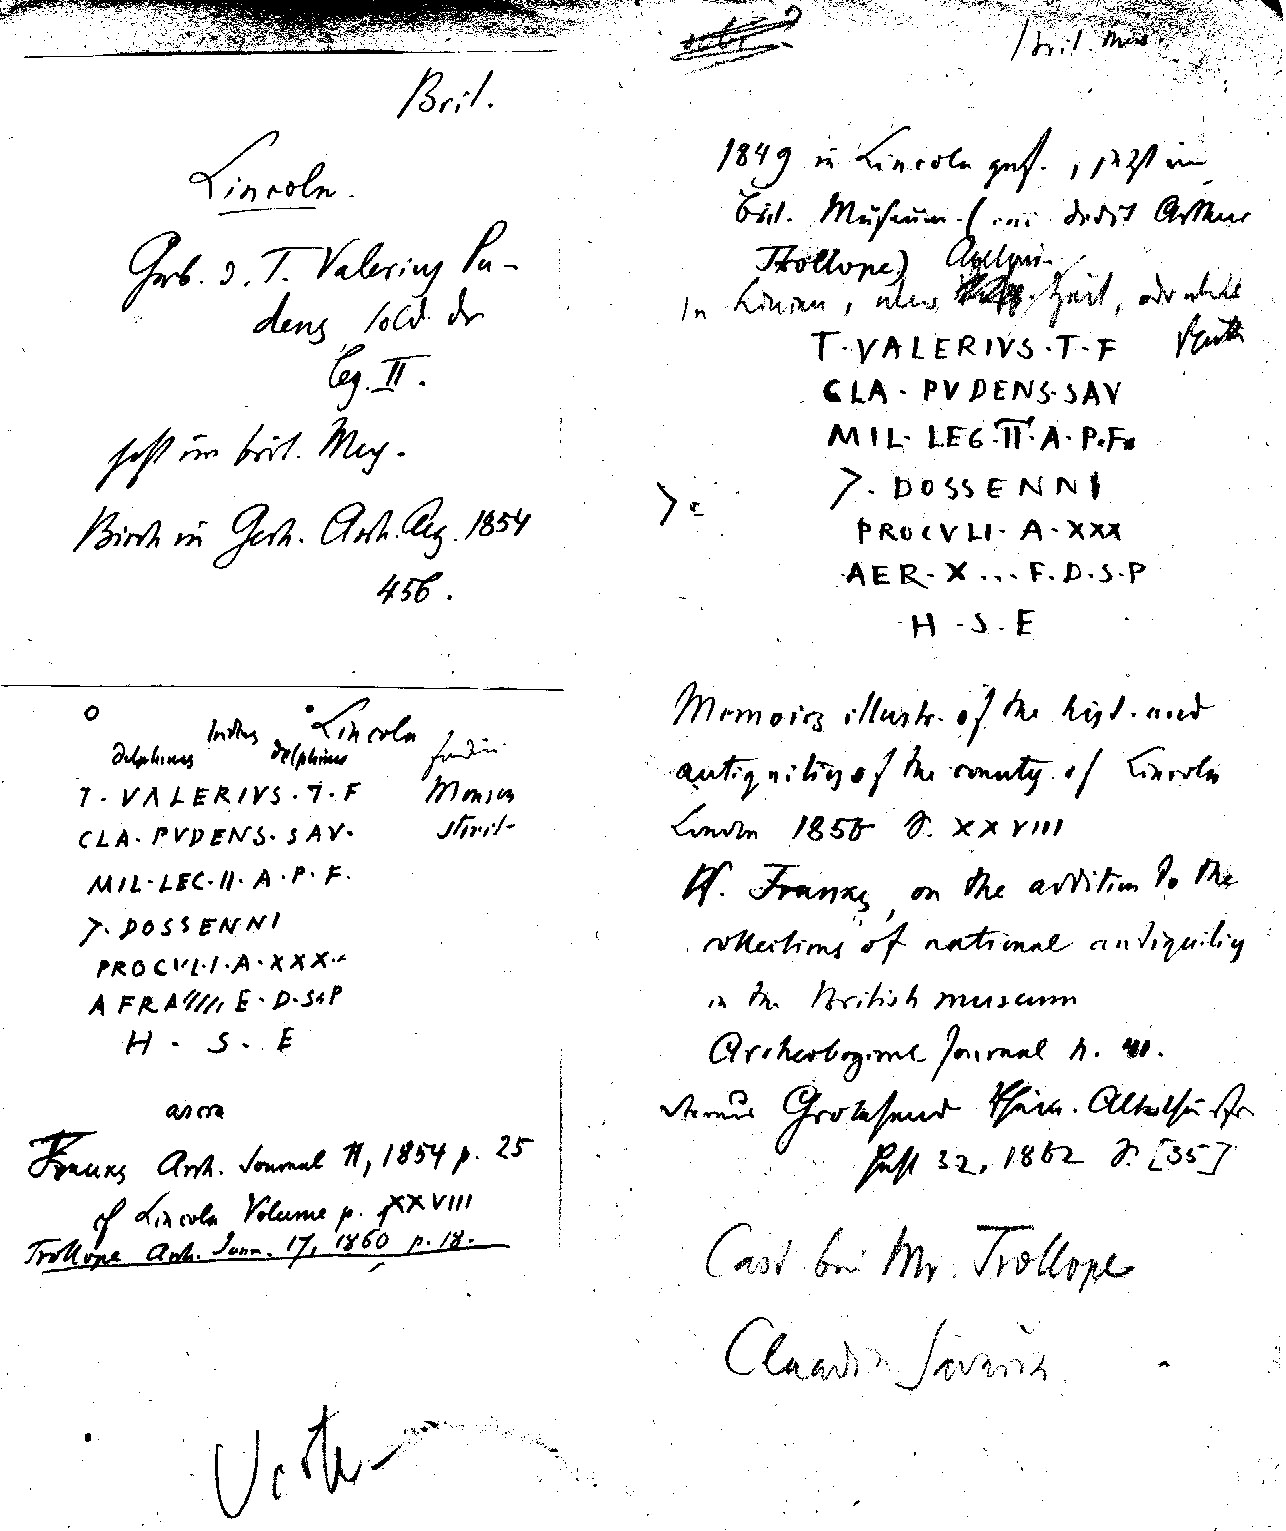 Brit.
Lincoln.
Grab. d. T. Valerius Pu-
dens sold. der
leg. II.
jetzt im brit. Mus.
Birch in Gerh. Arch. Anz. 1854
456.
Lincoln
delphinus delphinus
T. VALERIVS. T. F
Monson
CLA. PVDENS. SAV.
street
MIL. LEC. II. A. P. F.
>. DOSSENNI
PROCVLI. A. XXX.
A FRA E. D. S. P
H. S. E
ascra
Franks Arch. Journal 11, 1854 p. 25
cf Lincoln Volume p. XXVIII
Trollope Arch. Journ. 17, 1860 p. 18.
Brit. Mus.
1849 in Lincoln gef., jetzt im
Brit. Museum (dedit Arthur
Trollope)
In Linien,
T. VALERIVS. T. F
CLA. PVDENS. SAV
MIL. LEG. II. A. P. F.
>. DOSSENNI
PROCVLI. A. XXX
AER. X ... F. D. S. P
H. S. E
Memoirs illustr. of the hist. and
antiquities of the county of Lincoln
London 1850 S. XXVIII
W. Franks, on the addition to the
collections of national antiquities
in the British museum
Archeological Journal n. 41.
Grotefend
Heft 32, 1862 S. [35]
Cast bei Mr. Trollope
Claudia Savaria